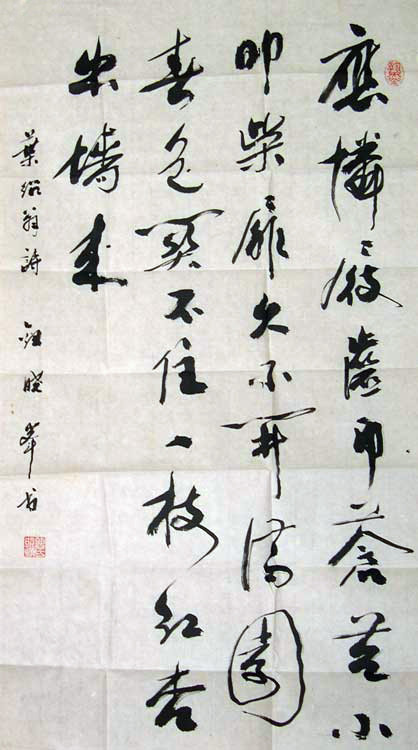 應憐屐齒印蒼苔小
叩柴扉久不開滿園
春色関不住一枝紅杏
出墻來
葉紹翁詩 曉峯书